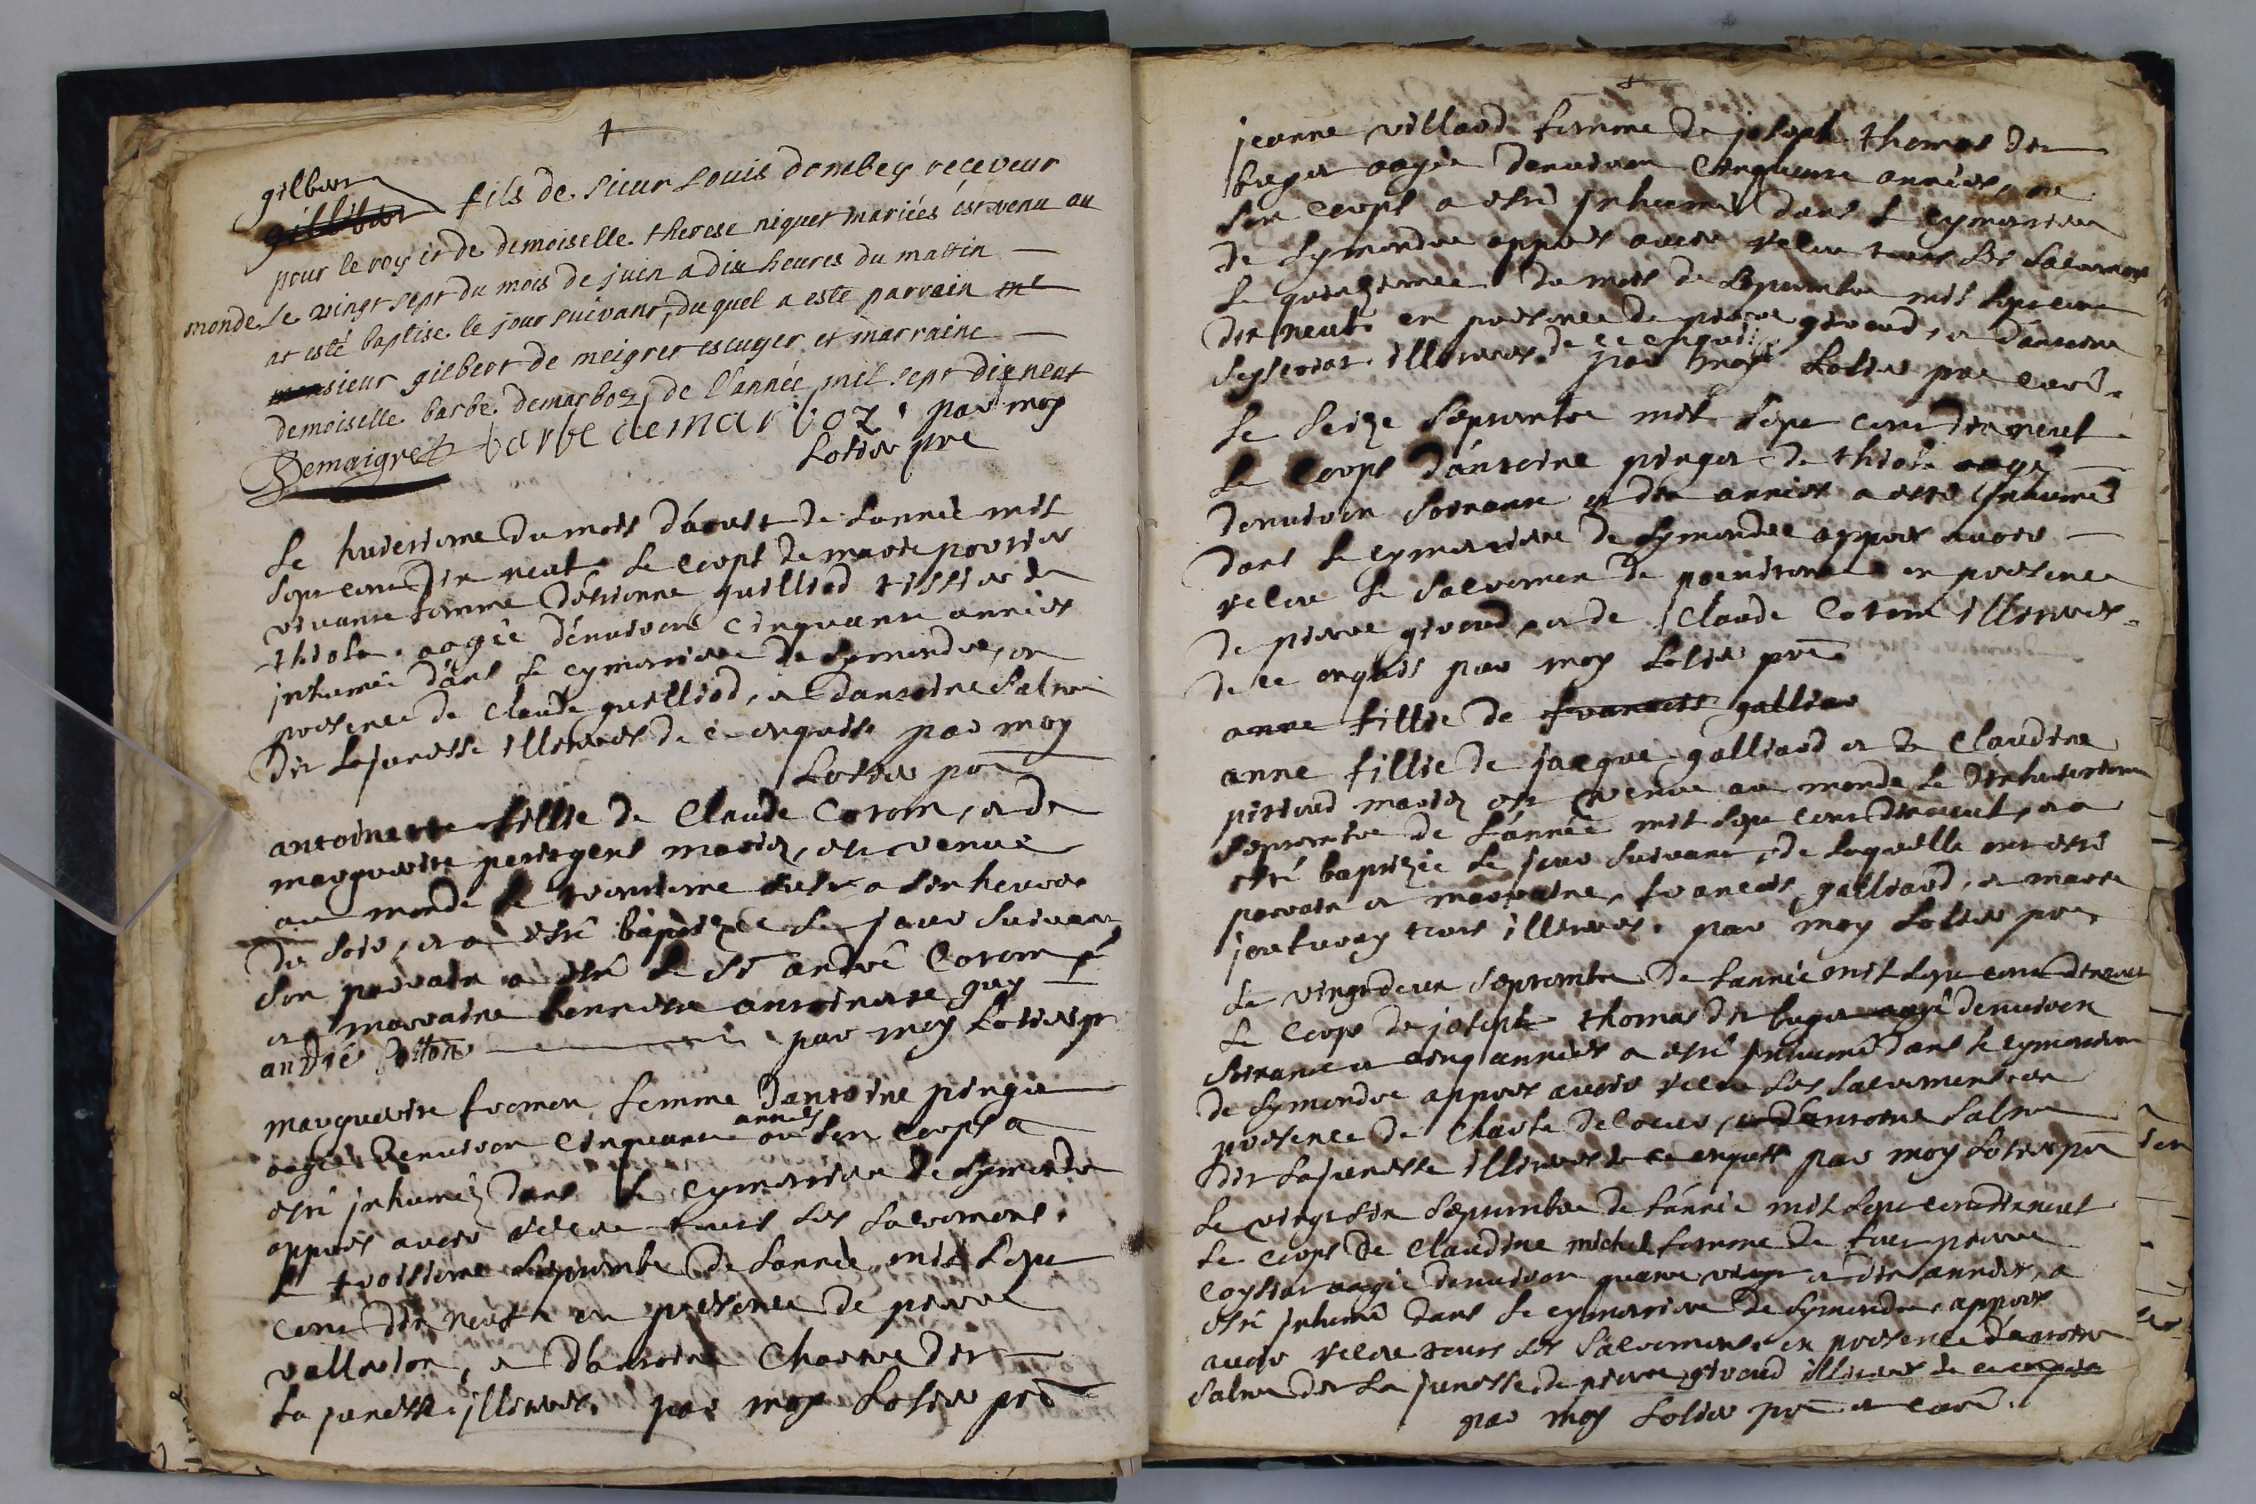 gilber
fils de sieur Louis dombey receveur
pour le roy et de demoiselle therese niquet mariées est venu au
monde le vingt sept du mois de juin a dix heures du mattin
at esté baptise le jour suivant, du quel a este parrain
monsieur gilbert de meigret escuyer et marraine
demoiselle barbe demarboz de l'année mil sept dix neuf
Demaigret barbe demarboz par moy
Lotier pre
Le huitiesme du mois d'aoust de l'année mil
sept cent dix neuf le corps de marie
vivante femme d'estienne guilliod tissier de
thiole aagée d'environ cinquante années
inhumée dans le cymetiere de Symandre, en
presence de Claude guilliod, et d'antoine
dit lajunesse illeteres de ce enquis par moy
Lotier pre
antoinette fillie de Claude Coton, et de
marguerite mariez, est venue
au monde le a six heures
du soir, et a esté baptizee le jour suivant
son parrain a esté le Sr andré Coton
et marraine honneste antoinette guy
andré Cotton par moy Lotier pr
marguerite fromon femme d'antoine pinget
aagée denviron cinquante années son corps a
esté inhumé dans le cymetiere de Symandre
appres avoir receue tous les sacremens
le troisiesme septembre de l'année mil sept
cent dix neuf en presence de pierre
et d'antoine dit
la junesse illeteres. par moy Lotier pre
jeanne villard femme de joseph thomas dit
buget aagée denviron cinquante années, et
son corps a esté inhumé dans le cymetiere
de Symandre appres avoir receue tous les sacremens
le quinziemee du mois de septembre mil sept cent
dix neuf. en presence de pierre giroud, et d'antoine
illeteres de ce enquis par moy Lotier pre curé.
Le seize septembre mil sept cent dix neuf
le corps d'antoine pinget de thiole aagé
denviron soixante et dix années a esté inhumé
dans le cymetiere de Symandre appres avoir
receue le sacremen de penitence en presence
de pierre giroud, et de Claude Coton illeteres
de ce enquis par moy Lotier pre
anne fillie de francois galliar
anne fillie de jacque galliard et de Claudine
pitioud mariez est venue au monde le dix huitiesme
septembre de l'année mil sept cent dix neuf, et a
esté baptizée le jour suivant, de laquelle ont esté
parrain et marraine, francois galliard, et marie
tous illeteres. par moy Lotier pre
Le vingt deux septembre de l'année mil sept cent dix neuf
le corps de joseph thomas dit buget aagé denviron
soixante et cinq années a esté inhumé dans le cymetiere
de Symandre appres avoir receue les sacremens en
presence de Charle et d'antoine
dit la junesse illeteres de ce enquis par moy Lotier pre
Le vingt six septembre de l'année mil sept cent dix neuf
le corps de Claudine michel femme de feu pierre
aagée denviron quatre vingt et dix années, a
esté inhumé dans le cymetiere de Symandre, appres
avoir receue tous les sacremens en presence d'antoine
dit la junesse, de pierre giroud illeteres de ce enquis
par moy Lotier pre et curé.